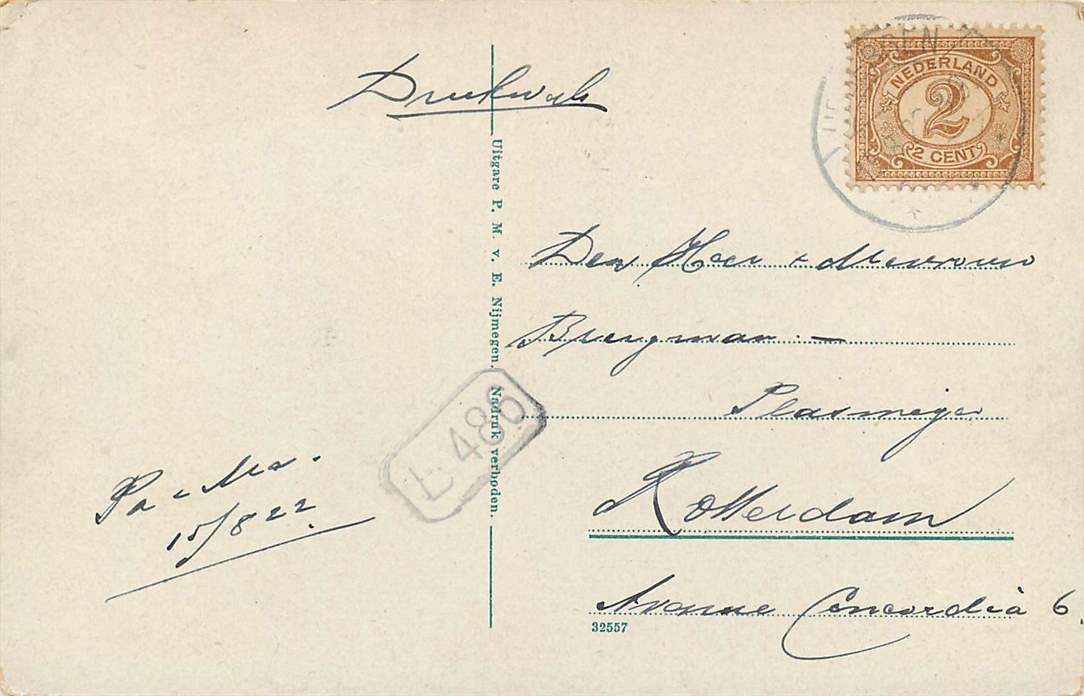 Drukwerk
NEDERLAND
2
2 CENT
Den Heer + Mevrouw
Brengman. —
Plasmeijer
Rotterdam
Avenue Concordia 6.
Pa - Ma.
15/8 22
L 486
Uitgave P. M. v. E. Nijmegen. Nadruk verboden
32557